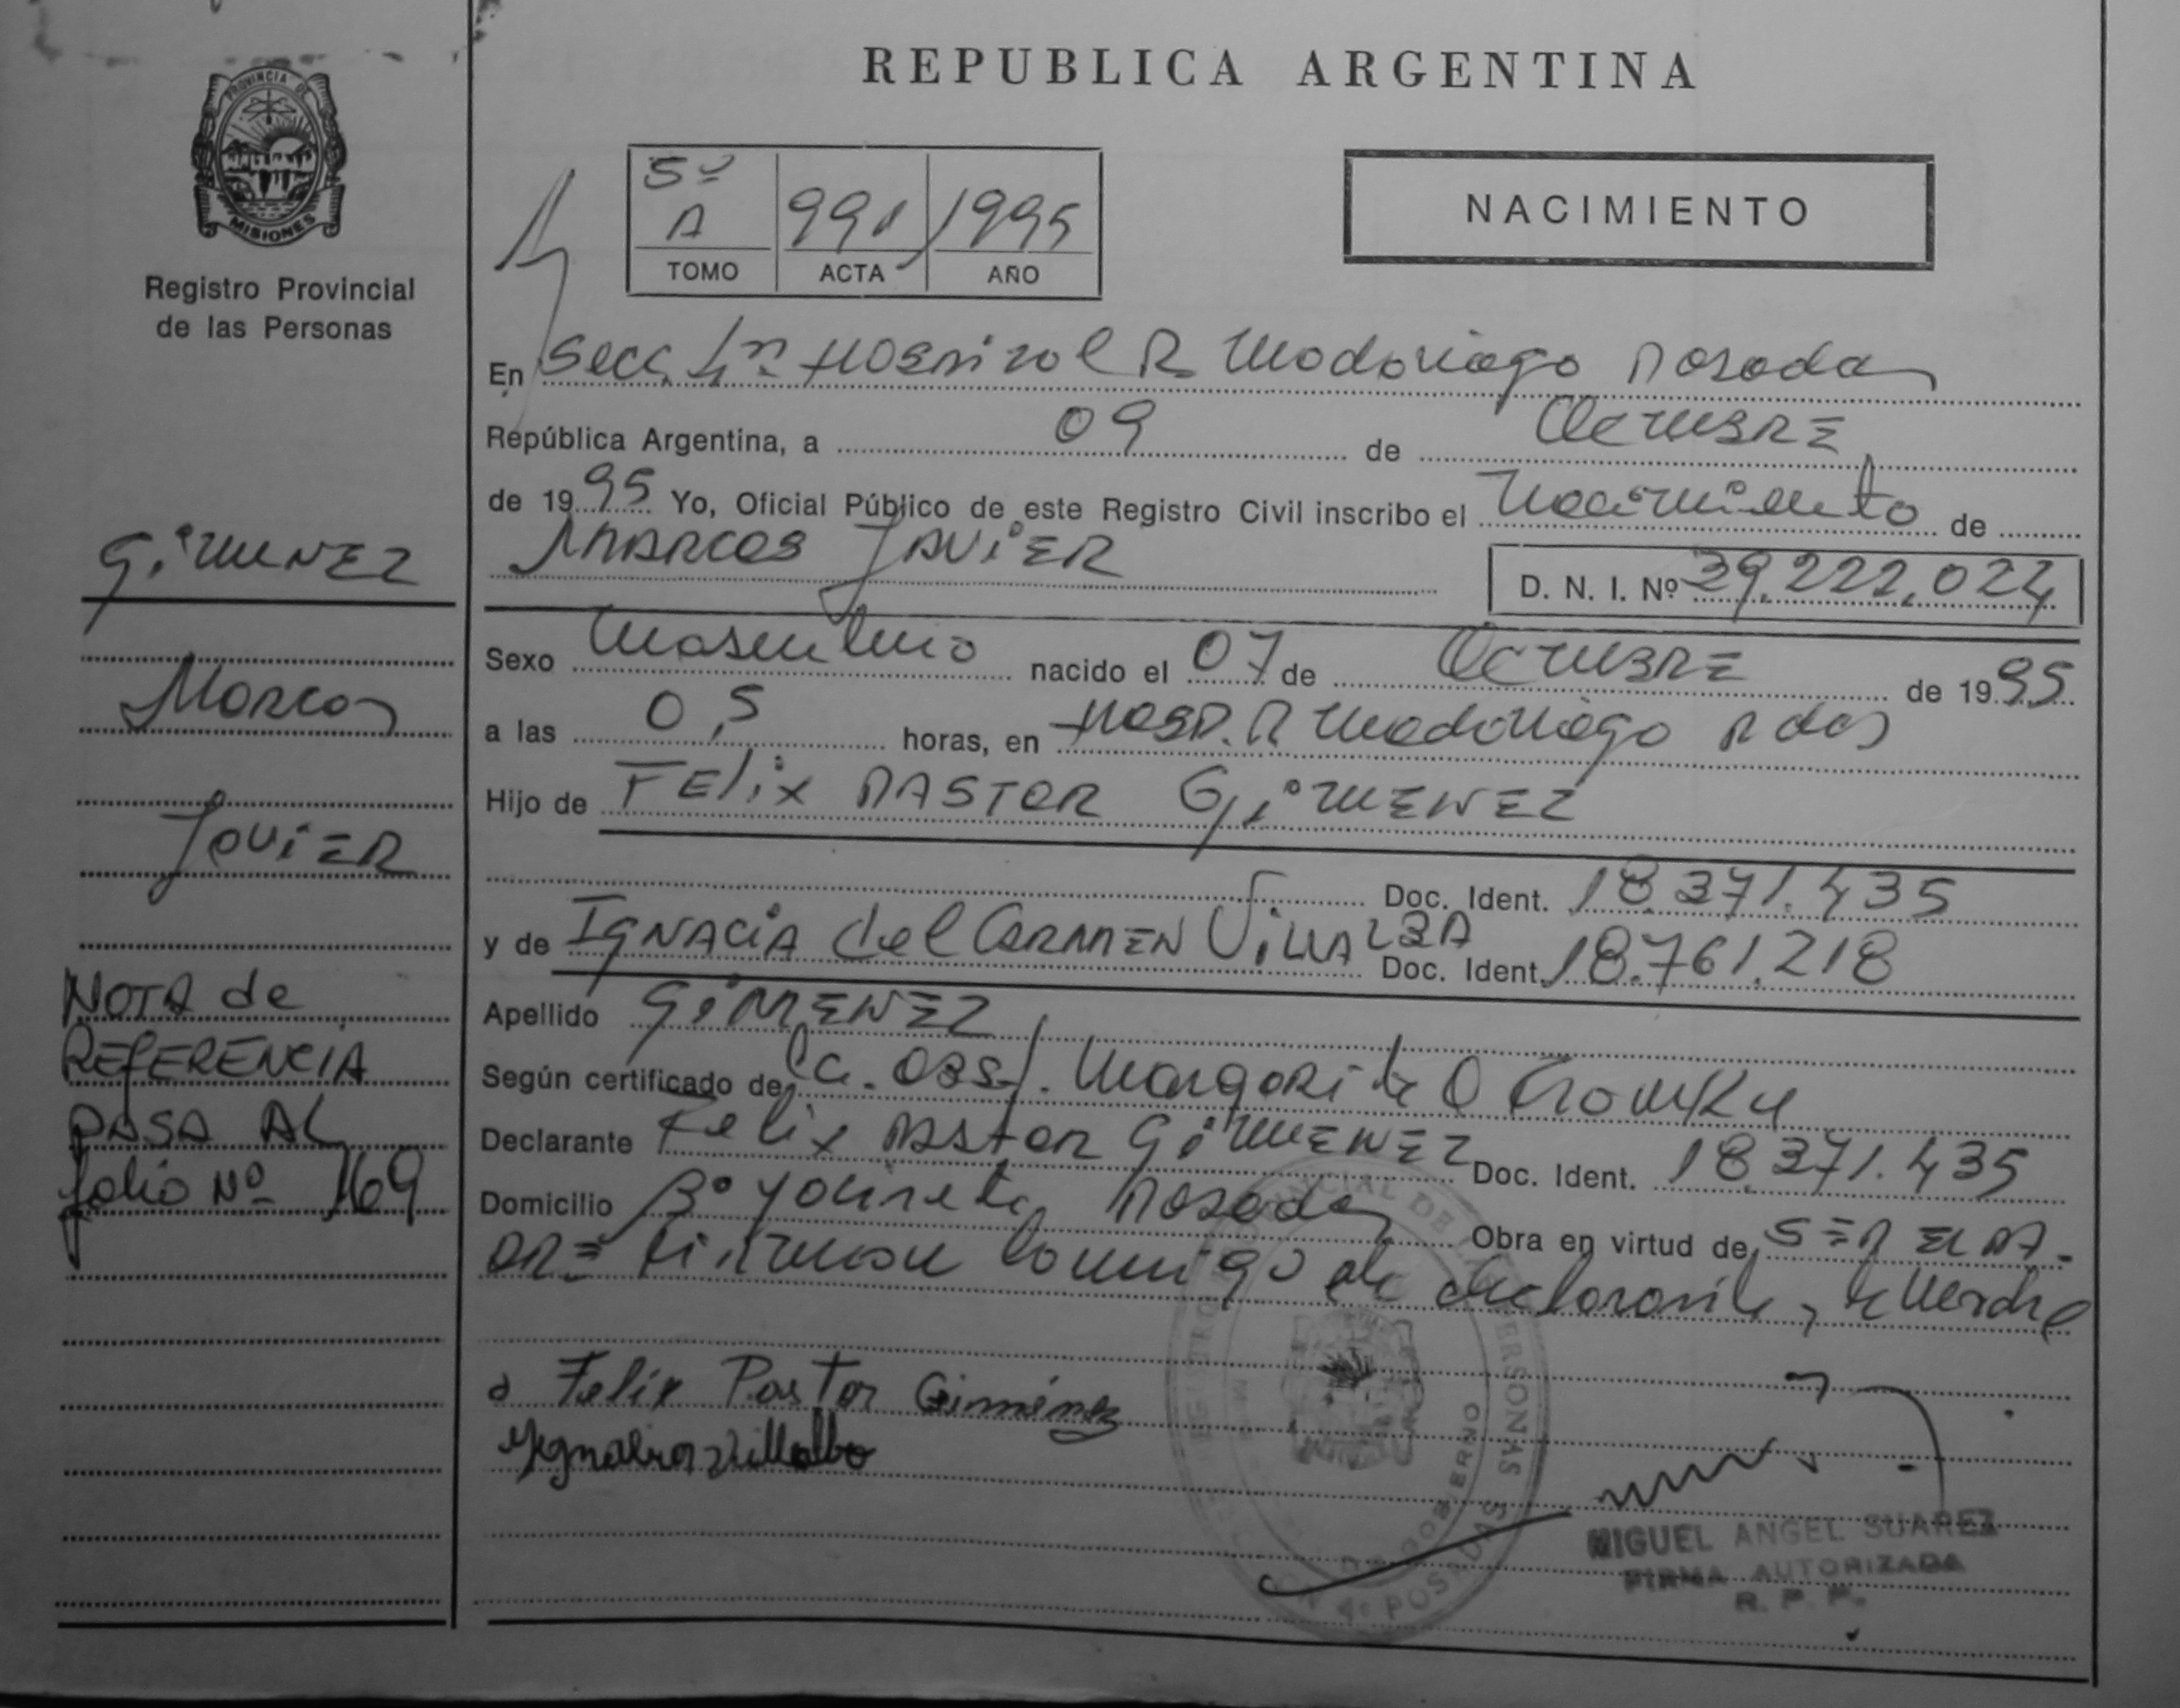 REPUBLICA ARGENTINA
PROVINCIA DE
MISIONES
Registro Provincial
de las Personas
5º
A 991 1995
TOMO ACTA AÑO
NACIMIENTO
En Secc. 4ª Hospital R Madariaga Posadas
República Argentina, a 09 de Octubre
de 1995 Yo, Oficial Público de este Registro Civil inscribo el Nacimiento de
MARCOS JAViER
D. N. I. Nº 39.222.024
Sexo Masculino nacido el 07 de Octubre de 1995
a las 0,5 horas, en Hosp. R Madariaga Pdas
Hijo de FEliX PASTOR GiMENEZ
Doc. Ident. 18.371.435
y de IGNACiA del CARMEN ViLLALBA
Doc. Ident. 18.761.218
Apellido GiMENEZ
Según certificado de Obst. Margarita
Declarante Felix Pastor GiMENEZ Doc. Ident. 18.371.435
Domicilio Bº Yacireta Posadas Obra en virtud de SER EL PA-
DRE Firman conmigo el declarante, la Madre
Felix Pastor Giménez
Ygnacia Villalba
MIGUEL ANGEL SUAREZ
FIRMA AUTORIZADA
R. P. P.
GiMENEZ
Marcos
JaviER
NOTA de
REFERENCIA
PASA AL
folio Nº 169